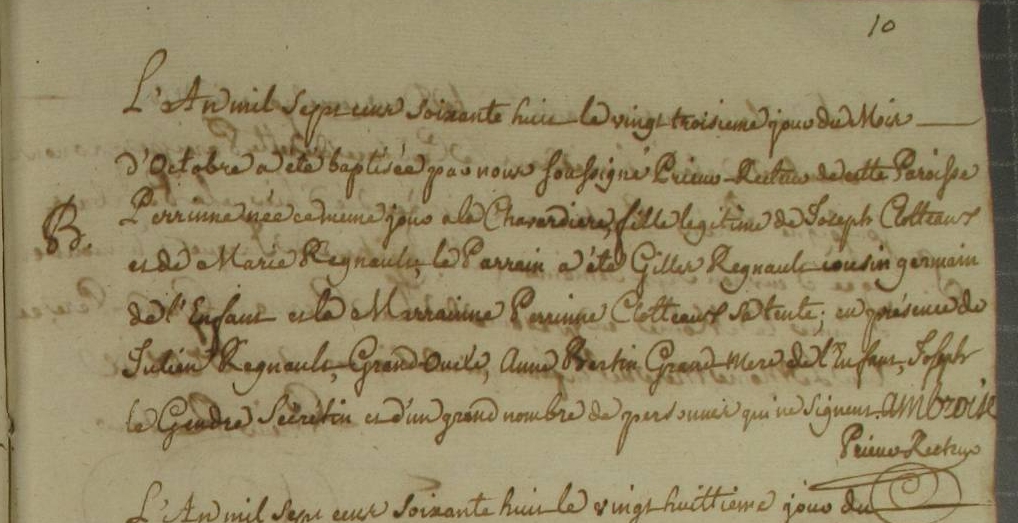 10
L'An mil sept cent soixante huit le vingt troisieme jour du Mois
d'Octobre a été baptisée par nous soussigné Prieur-Recteur de cette Paroisse
B. Perrinne née ce meme jour a la Chavardiere, fille legitime de Joseph Clotteaux
et de Marie Regnault, le Parrain a été Gilles Regnault cousin germain
de l'Enfant et la Marrainne Perrinne Clotteaux sa tente; en présence de
Julien Regnault, Grand Oncle, Anne Bertin Grand-Mere de l'Enfant, Joseph
le Gendre Secretin et d'un grand nombre de personnes qui ne signent. Ambroise
Prieur Recteur
L'An mil sept cent soixante huit le vingt huittieme jour du